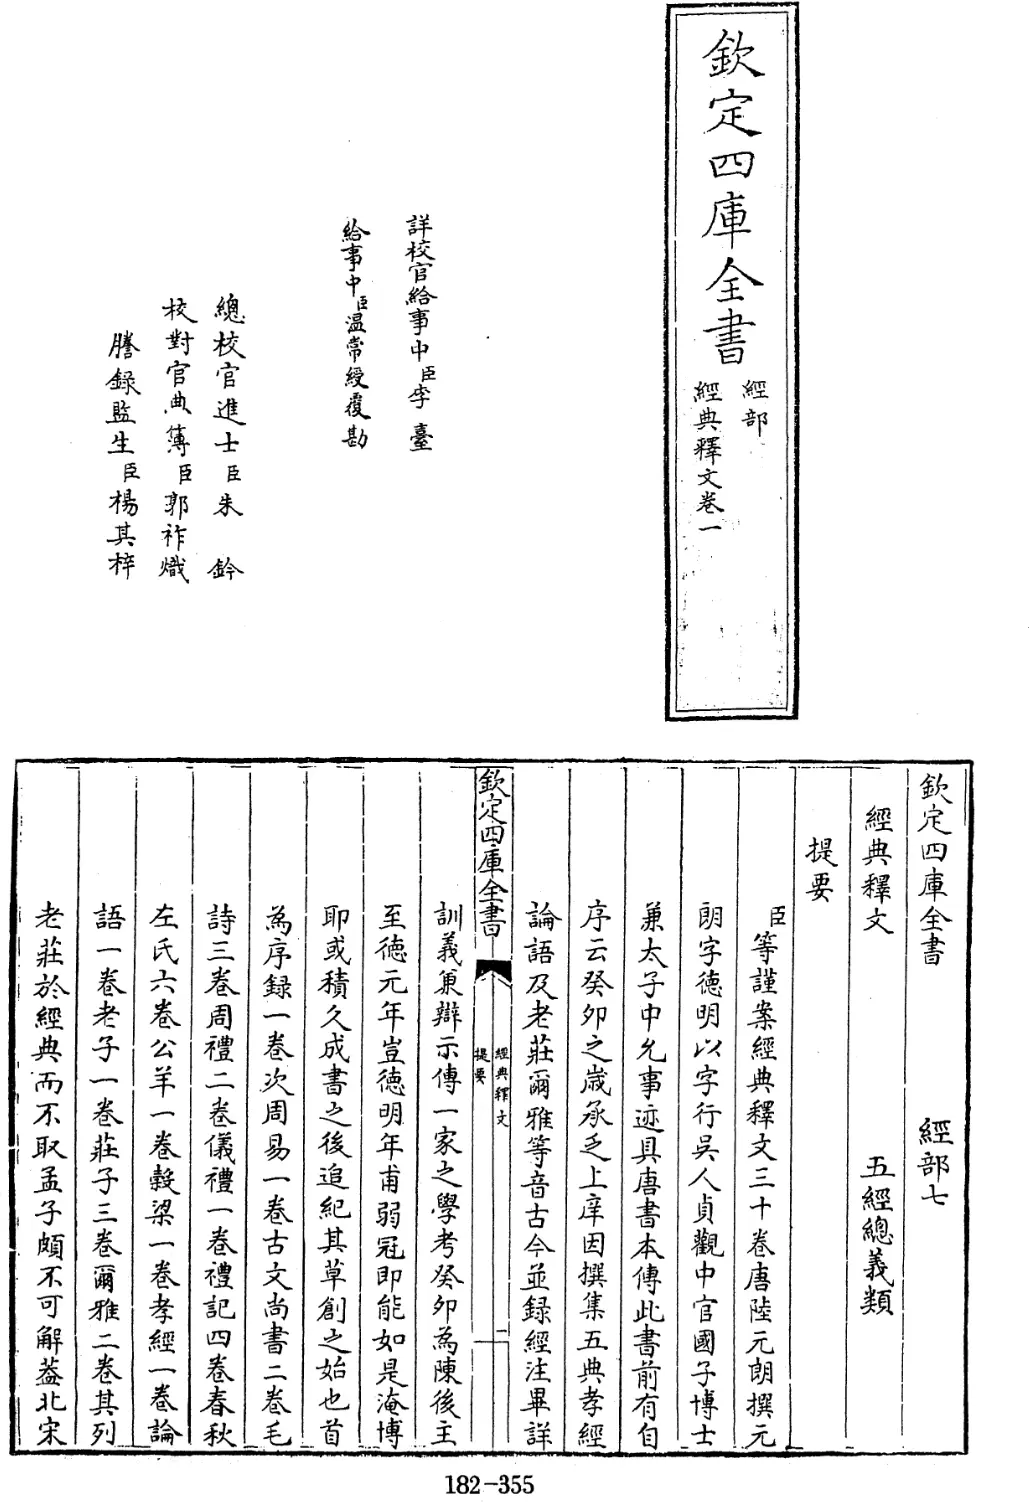 欽定四庫全書
經部
經典釋文卷一
詳校官給事中臣李臺
給事中臣温常綬覆勘
總校官進士臣朱鈐
校對官典簿臣郭祚熾
謄錄監生臣楊其梓
欽定四庫全書 經部七
經典釋文 五經總義類
提要
臣等謹案經典釋文三十卷唐陸元朗撰元
朗字徳明以字行吳人貞觀中官國子博士
兼太子中允事迹具唐書本傳此書前有自
序云癸卯之嵗承乏上庠因撰集五典孝經
論語及老莊爾雅等音古今並録經注畢詳
欽定四庫全書
經典釋文
提要
一
訓義兼辯示傳一家之學考癸卯為陳後主
至徳元年豈徳明年甫弱冠即能如是淹博
耶或積久成書之後追紀其草創之始也首
為序録一卷次周易一卷古文尚書二卷毛
詩三卷周禮二卷儀禮一卷禮記四卷春秋
左氏六卷公羊一卷穀梁一卷孝經一卷論
語一卷老子一卷莊子三卷爾雅二卷其列
老莊於經典而不取孟子頗不可解葢北宋
182-355